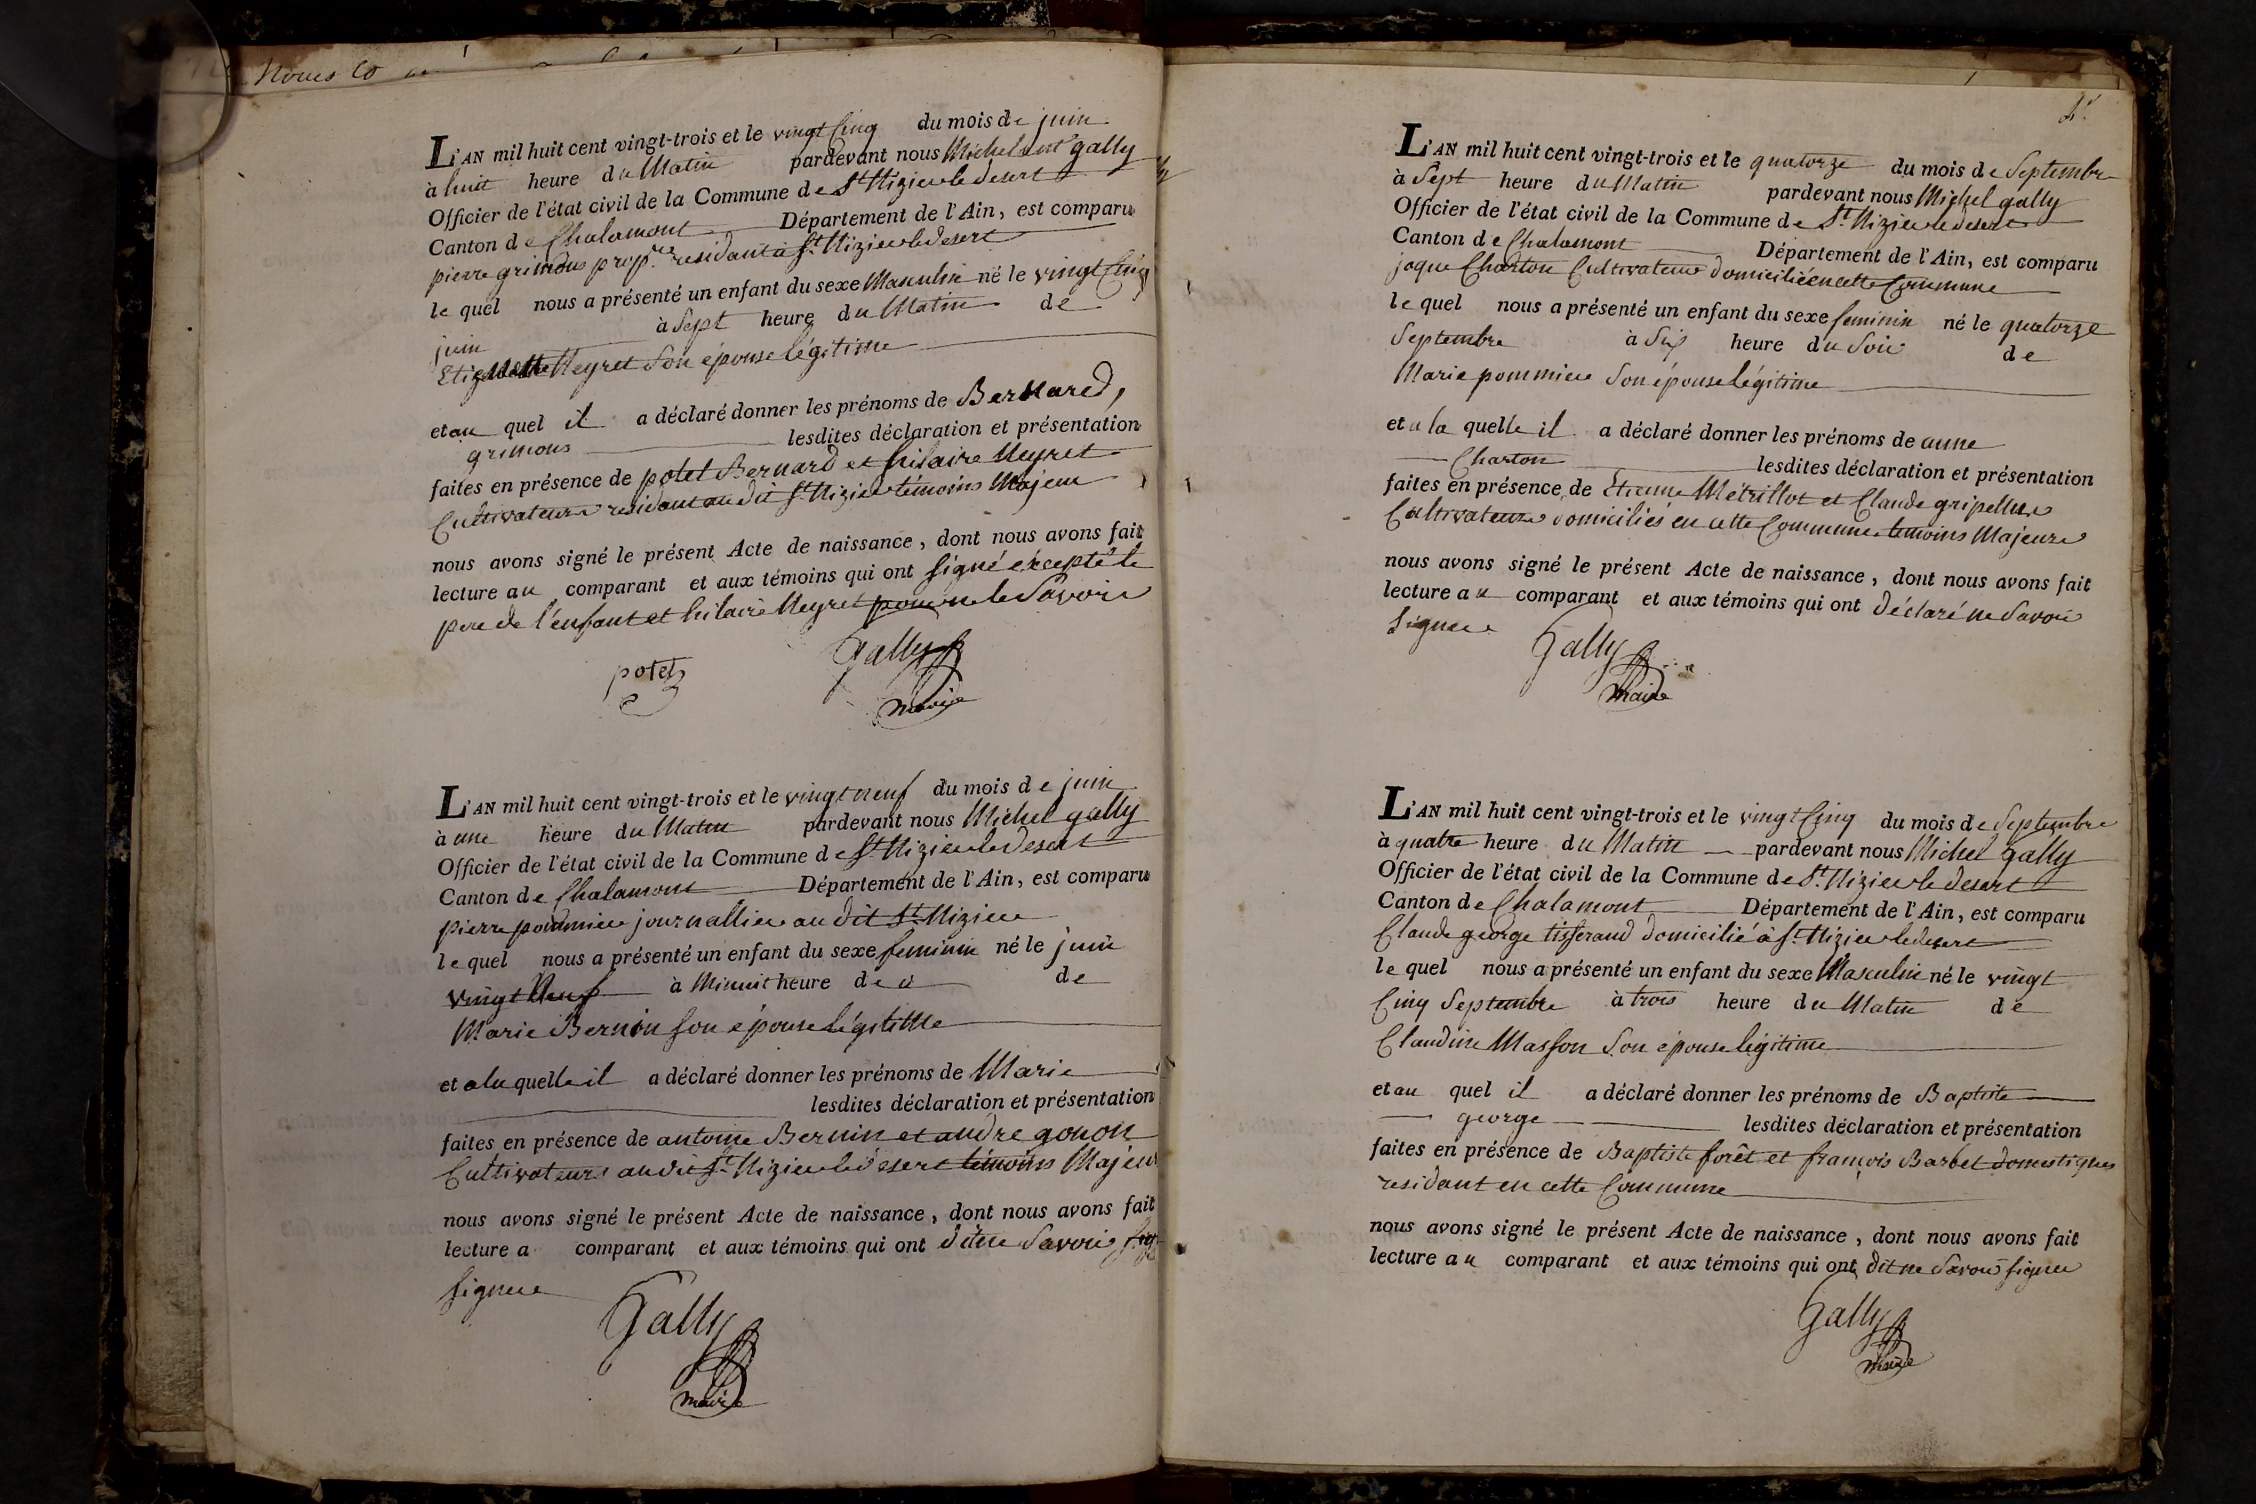 Nous
L'AN mil huit cent vingt-trois et le vingt Cinq du mois de juin
à huit heure du Matin pardevant nous Michel gally
Officier de l'état civil de la Commune de St Nizier le desert
Canton de Chalamont Département de l'Ain, est comparu
pierre grimons prop.re residant à St Nizier le desert
le quel nous a présenté un enfant du sexe Masculin né le vingt Cinq
juin à Sept heure du Matin de
Neyret Son épouse légitime
et au quel il a déclaré donner les prénoms de Bernard,
grimons lesdites déclaration et présentation
faites en présence de potet Bernard et hilaire Neyret
Cultivateurs residant au dit St Nizier témoins Majeur
nous avons signé le présent Acte de naissance, dont nous avons fait
lecture au comparant et aux témoins qui ont signé éxcepté le
pere de l'enfant et hilaire Neyret pour ne le Savoir
potet
Gally
maire
L'AN mil huit cent vingt-trois et le vingt neuf du mois de juin
à une heure du Matin pardevant nous Michel gally
Officier de l'état civil de la Commune de St Nizier le desert
Canton de Chalamont Département de l'Ain, est comparu
pierre pommier journallier au dit St Nizier
le quel nous a présenté un enfant du sexe feminin né le juin
vingt Neuf à Minuit heure de
Marie Bernin son épouse légitime
et a la quelle il a déclaré donner les prénoms de Marie
lesdites déclaration et présentation
faites en présence de antoine Bernin et andre gonon
Cultivateurs au dit St Nizier le desert témoins Majeur
nous avons signé le présent Acte de naissance, dont nous avons fait
lecture a comparant et aux témoins qui ont dit ne Savoir
signer
Gally
maire
L'AN mil huit cent vingt-trois et le quatorze du mois de Septembre
à Sept heure du Matin pardevant nous Michel gally
Officier de l'état civil de la Commune de St Nizier le desert
Canton de Chalamont Département de l'Ain, est comparu
jaque Charton Cultivateur domicilié en cette Commune
le quel nous a présenté un enfant du sexe feminin né le quatorze
Septembre à Six heure du Soir de
Marie pommier Son épouse légitime
et a la quelle il a déclaré donner les prénoms de anne
Charton lesdites déclaration et présentation
faites en présence de Etienne Métrillot et Claude
Cultivateurs domiciliés en cette Commune temoins Majeurs
nous avons signé le présent Acte de naissance, dont nous avons fait
lecture au comparant et aux témoins qui ont déclaré ne Savoir
Signer
Gally
maire
L'AN mil huit cent vingt-trois et le vingt Cinq du mois de Septembre
à quatre heure du Matin pardevant nous Michel gally
Officier de l'état civil de la Commune de St Nizier le desert
Canton de Chalamont Département de l'Ain, est comparu
Claude george tisserand domicilié à St Nizier le desert
le quel nous a présenté un enfant du sexe Masculin né le vingt
Cinq Septembre à trois heure du Matin de
Claudine Masson Son épouse légitime
et au quel il a déclaré donner les prénoms de Baptiste
george lesdites déclaration et présentation
faites en présence de Baptiste forêt et françois Barbet domestiques
residant en cette Commune
nous avons signé le présent Acte de naissance, dont nous avons fait
lecture au comparant et aux témoins qui ont dit ne Savoir signer
Gally
maire